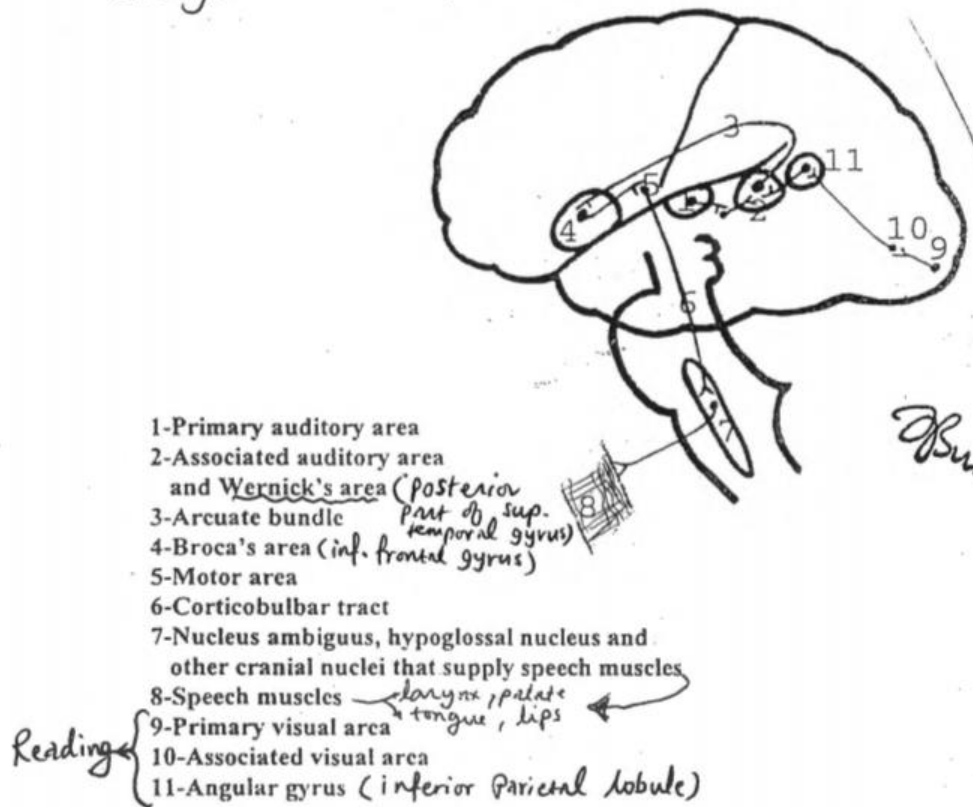 3
11
5
1
4
2
10
9
6
8
1-Primary auditory area
2-Associated auditory area
and Wernick's area (posterior
part of sup.
temporal gyrus)
3-Arcuate bundle
4-Broca's area (inf. frontal gyrus)
5-Motor area
6-Corticobulbar tract
7-Nucleus ambiguus, hypoglossal nucleus and
other cranial nuclei that supply speech muscles
8-Speech muscles larynx, palate
tongue, lips
9-Primary visual area
Reading
10-Associated visual area
11-Angular gyrus (inferior Parietal lobule)